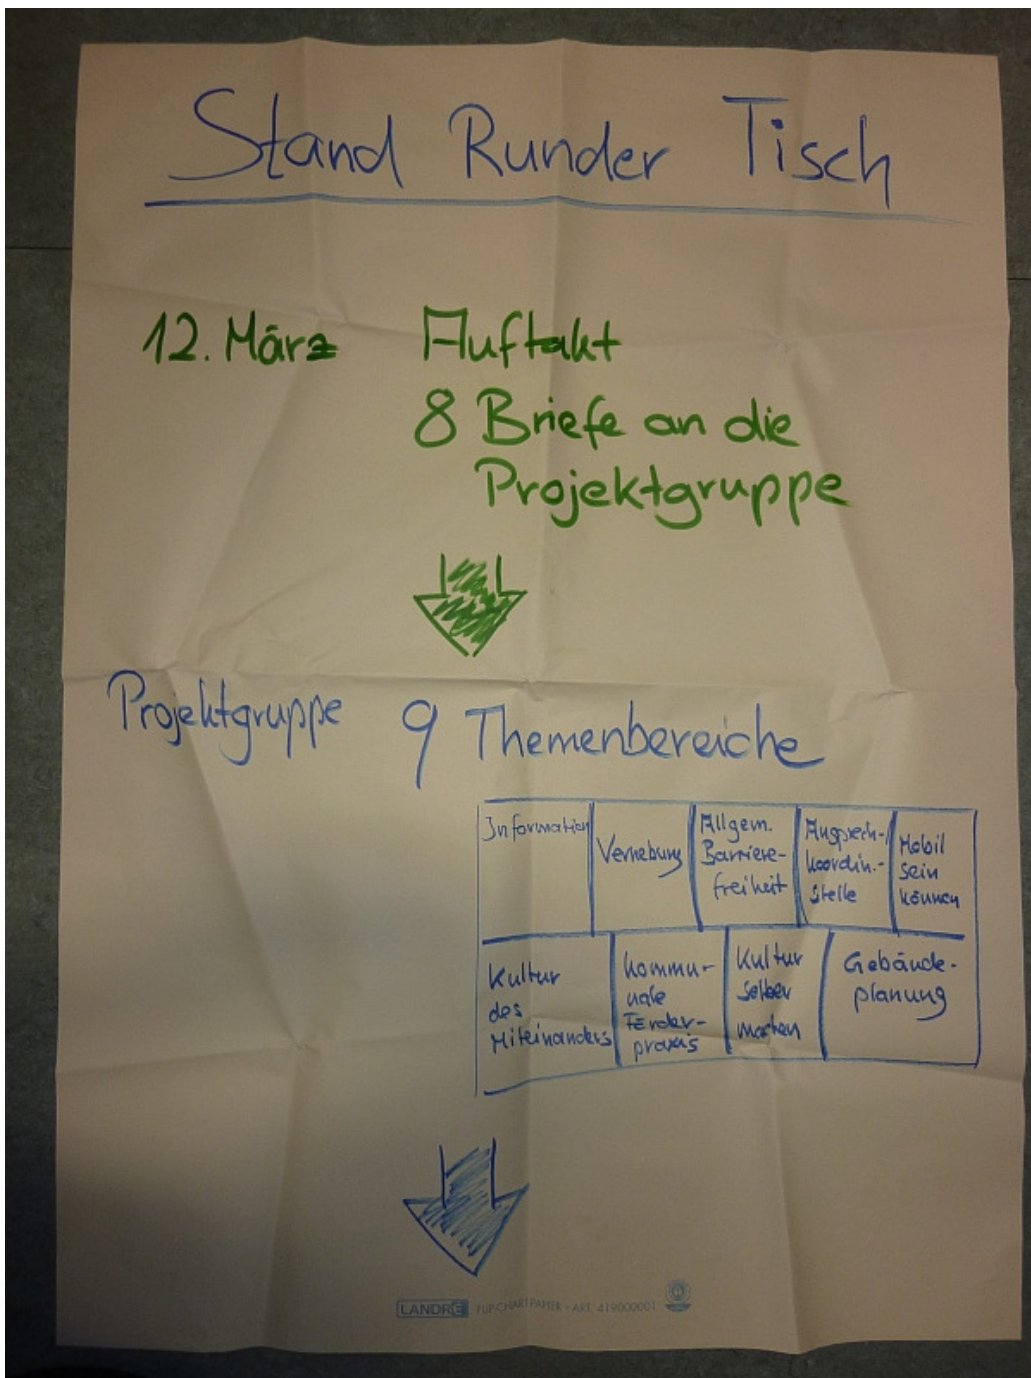 Stand Runder Tisch
12. März Auftakt
8 Briefe an die
Projektgruppe
Projektgruppe 9 Themenbereiche
Information
Vernebung
Allgem.
Barriere-
freiheit
Ansprech-/
koordin.-
stelle
Mobil
sein
können
Kultur
des
Miteinanders
kommu-
nale
Förder-
praxis
Kultur
selber
machen
Gebäude-
planung
LANDRÉ FLIP-CHART-PAPIER • ART. 419000001